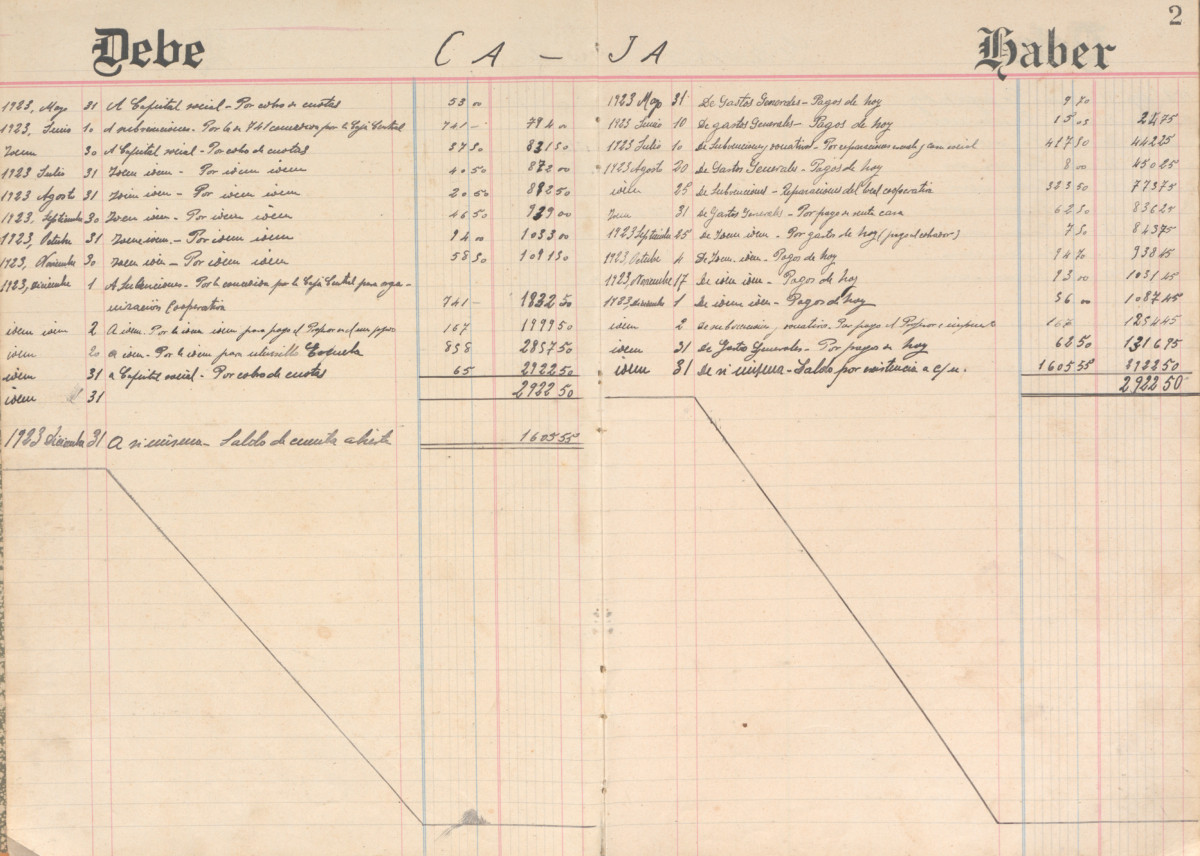 2
Debe
CA - JA
Haber
1923, Mayo 31 A Capital social - Por cobro de cuotas 53 00
1923, Junio 10 A subvenciones - Por la de 741 concedida por la Caja Central 741 - 794 00
Idem 30 A Capital social - Por cobro de cuotas 37 50 831 50
1923 Julio 31 Idem idem - Por idem idem 40 50 872 00
1923 Agosto 31 Idem idem - Por idem idem 20 50 892 50
1923, Septiembre 30 Idem idem - Por idem idem 46 50 939 00
1923, Octubre 31 Idem idem - Por idem idem 94 00 1033 00
1923, Noviembre 30 Idem idem - Por idem idem 58 50 1091 50
1923, Diciembre 1 A Subvenciones - Por la concedida por la Caja Central para orga-
nización Cooperativa 741 - 1832 50
idem idem 2 A idem. Por la idem idem para pago al 167 1999 50
idem 20 a idem. Por la idem para Escuela 858 2857 50
idem 31 a Capital social - Por cobro de cuotas 65 2922 50
idem 31 2922 50
1923 Diciembre 31 A si misma - Saldo de cuenta abierta 1605 55
1923 Mayo 31 De Gastos Generales - Pagos de hoy 9 70
1923 Junio 10 De gastos Generales - Pagos de hoy 15 05 24 75
1923 Julio 10 De Subvenciones - Por reparaciones 417 50 442 25
1923 Agosto 20 De Gastos Generales - Pagos de hoy 8 00 450 25
idem 25 de Subvenciones - Reparaciones del local cooperativa 323 50 773 75
Idem 31 de Gastos Generales - Por pago de renta casa 62 50 836 25
1923 Septiembre 25 de Idem idem - Por gasto de hoy (pago al cobrador) 7 50 843 75
1923 Octubre 4 de Idem idem - Pagos de hoy 94 70 938 45
1923, Noviembre 17 de idem idem - Pagos de hoy 93 00 1031 45
1923, Diciembre 1 de idem idem - Pagos de hoy 56 00 1087 45
idem 2 de subvenciones - Por pago al 167 1254 45
idem 31 de Gastos Generales - Por pagos de hoy 62 50 1316 95
idem 31 De si misma - Saldo por existencia a c/n. 1605 55 2922 50
2922 50